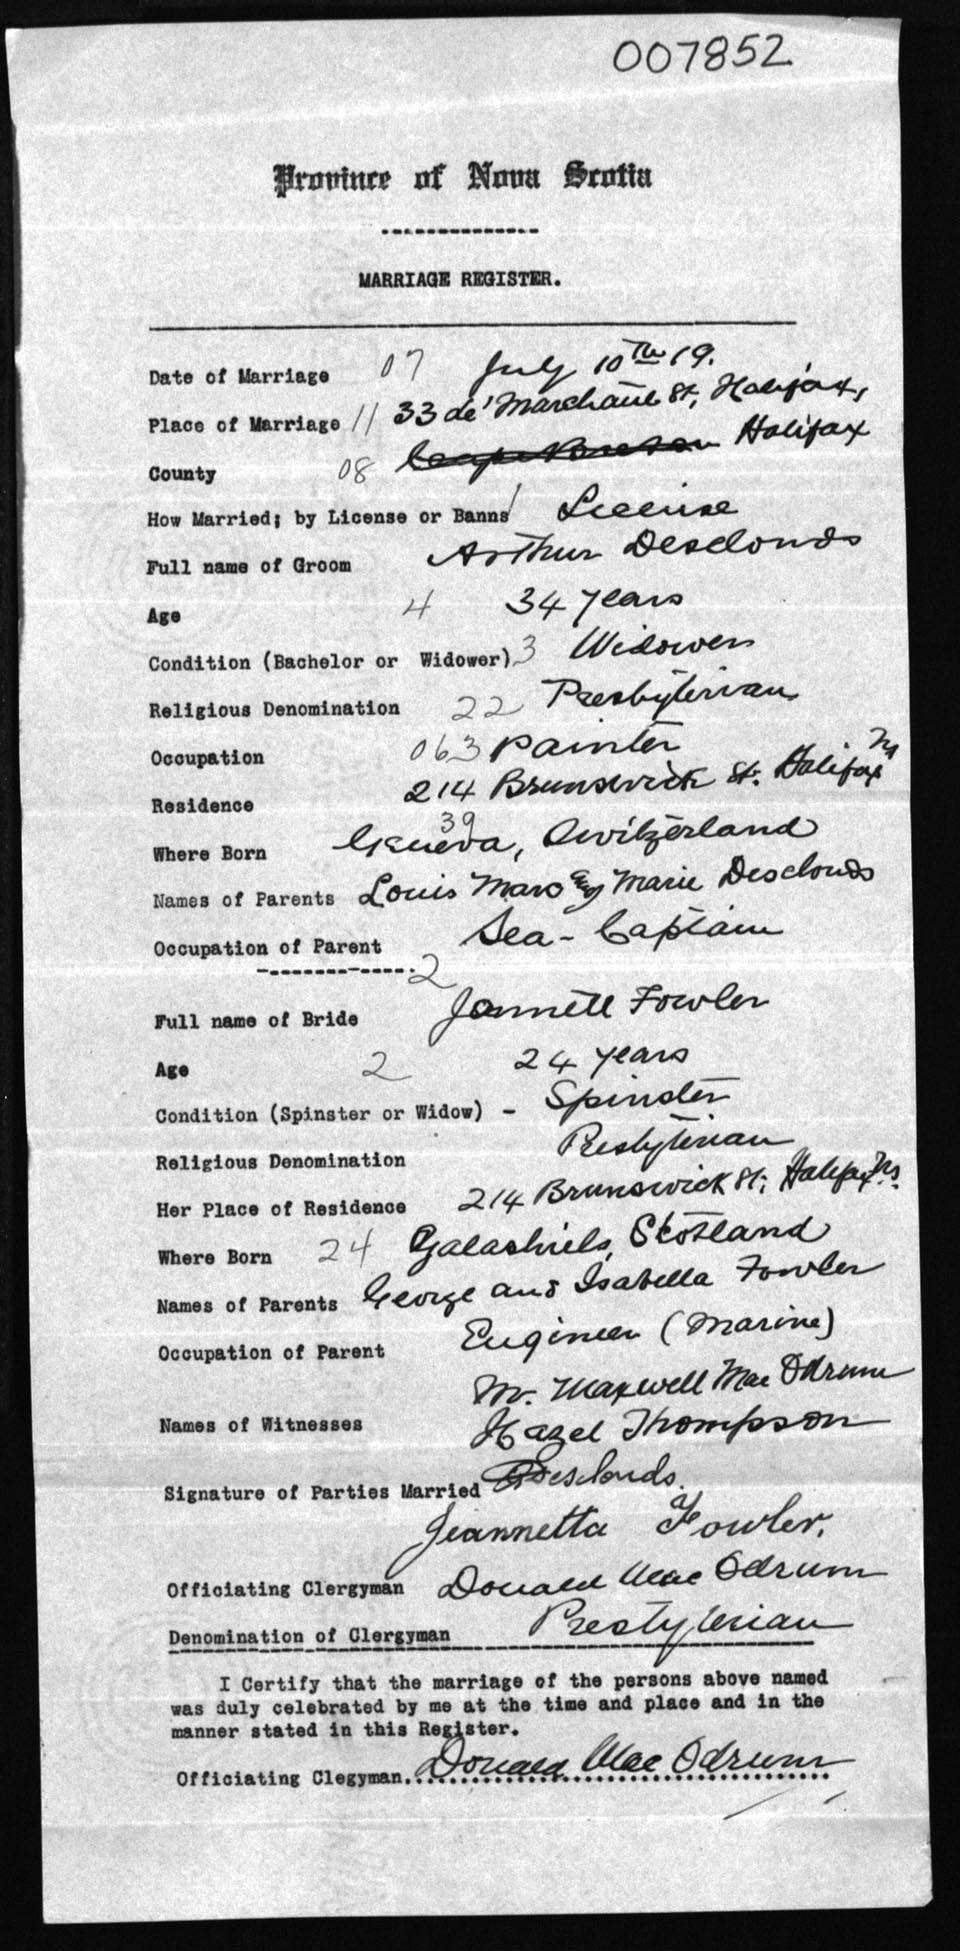 007852
Province of Nova Scotia
MARRIAGE REGISTER.
Date of Marriage 07 July 10th 19.
Place of Marriage 11 33 de' Marchant St, Halifax,
County 08 Cape Breton Halifax
How Married; by License or Banns / License
Full name of Groom Arthur Desclouds
Age 4 34 years
Condition (Bachelor or Widower) 3 Widower
Religious Denomination 22 Presbyterian
Occupation 063 Painter
Residence 214 Brunswick St. Halifax NS
Where Born 39 Geneva, Switzerland
Names of Parents Louis Marc and Marie Desclouds
Occupation of Parent Sea-Captain
2
Full name of Bride Jannett Fowler
Age 2 24 years
Condition (Spinster or Widow) - Spinster
Religious Denomination Presbyterian
Her Place of Residence 214 Brunswick St; Halifax Ns.
Where Born 24 Galashiels, Scotland
Names of Parents George and Isabella Fowler
Occupation of Parent Engineer (Marine)
Mr. Maxwell Mac Odrum
Names of Witnesses Hazel Thompson
Signature of Parties Married Desclouds.
Jeannetta Fowler.
Officiating Clergyman Donald Mac Odrum
Denomination of Clergyman Presbyterian
I Certify that the marriage of the persons above named
was duly celebrated by me at the time and place and in the
manner stated in this Register.
Officiating Clegyman. Donald Mac Odrum